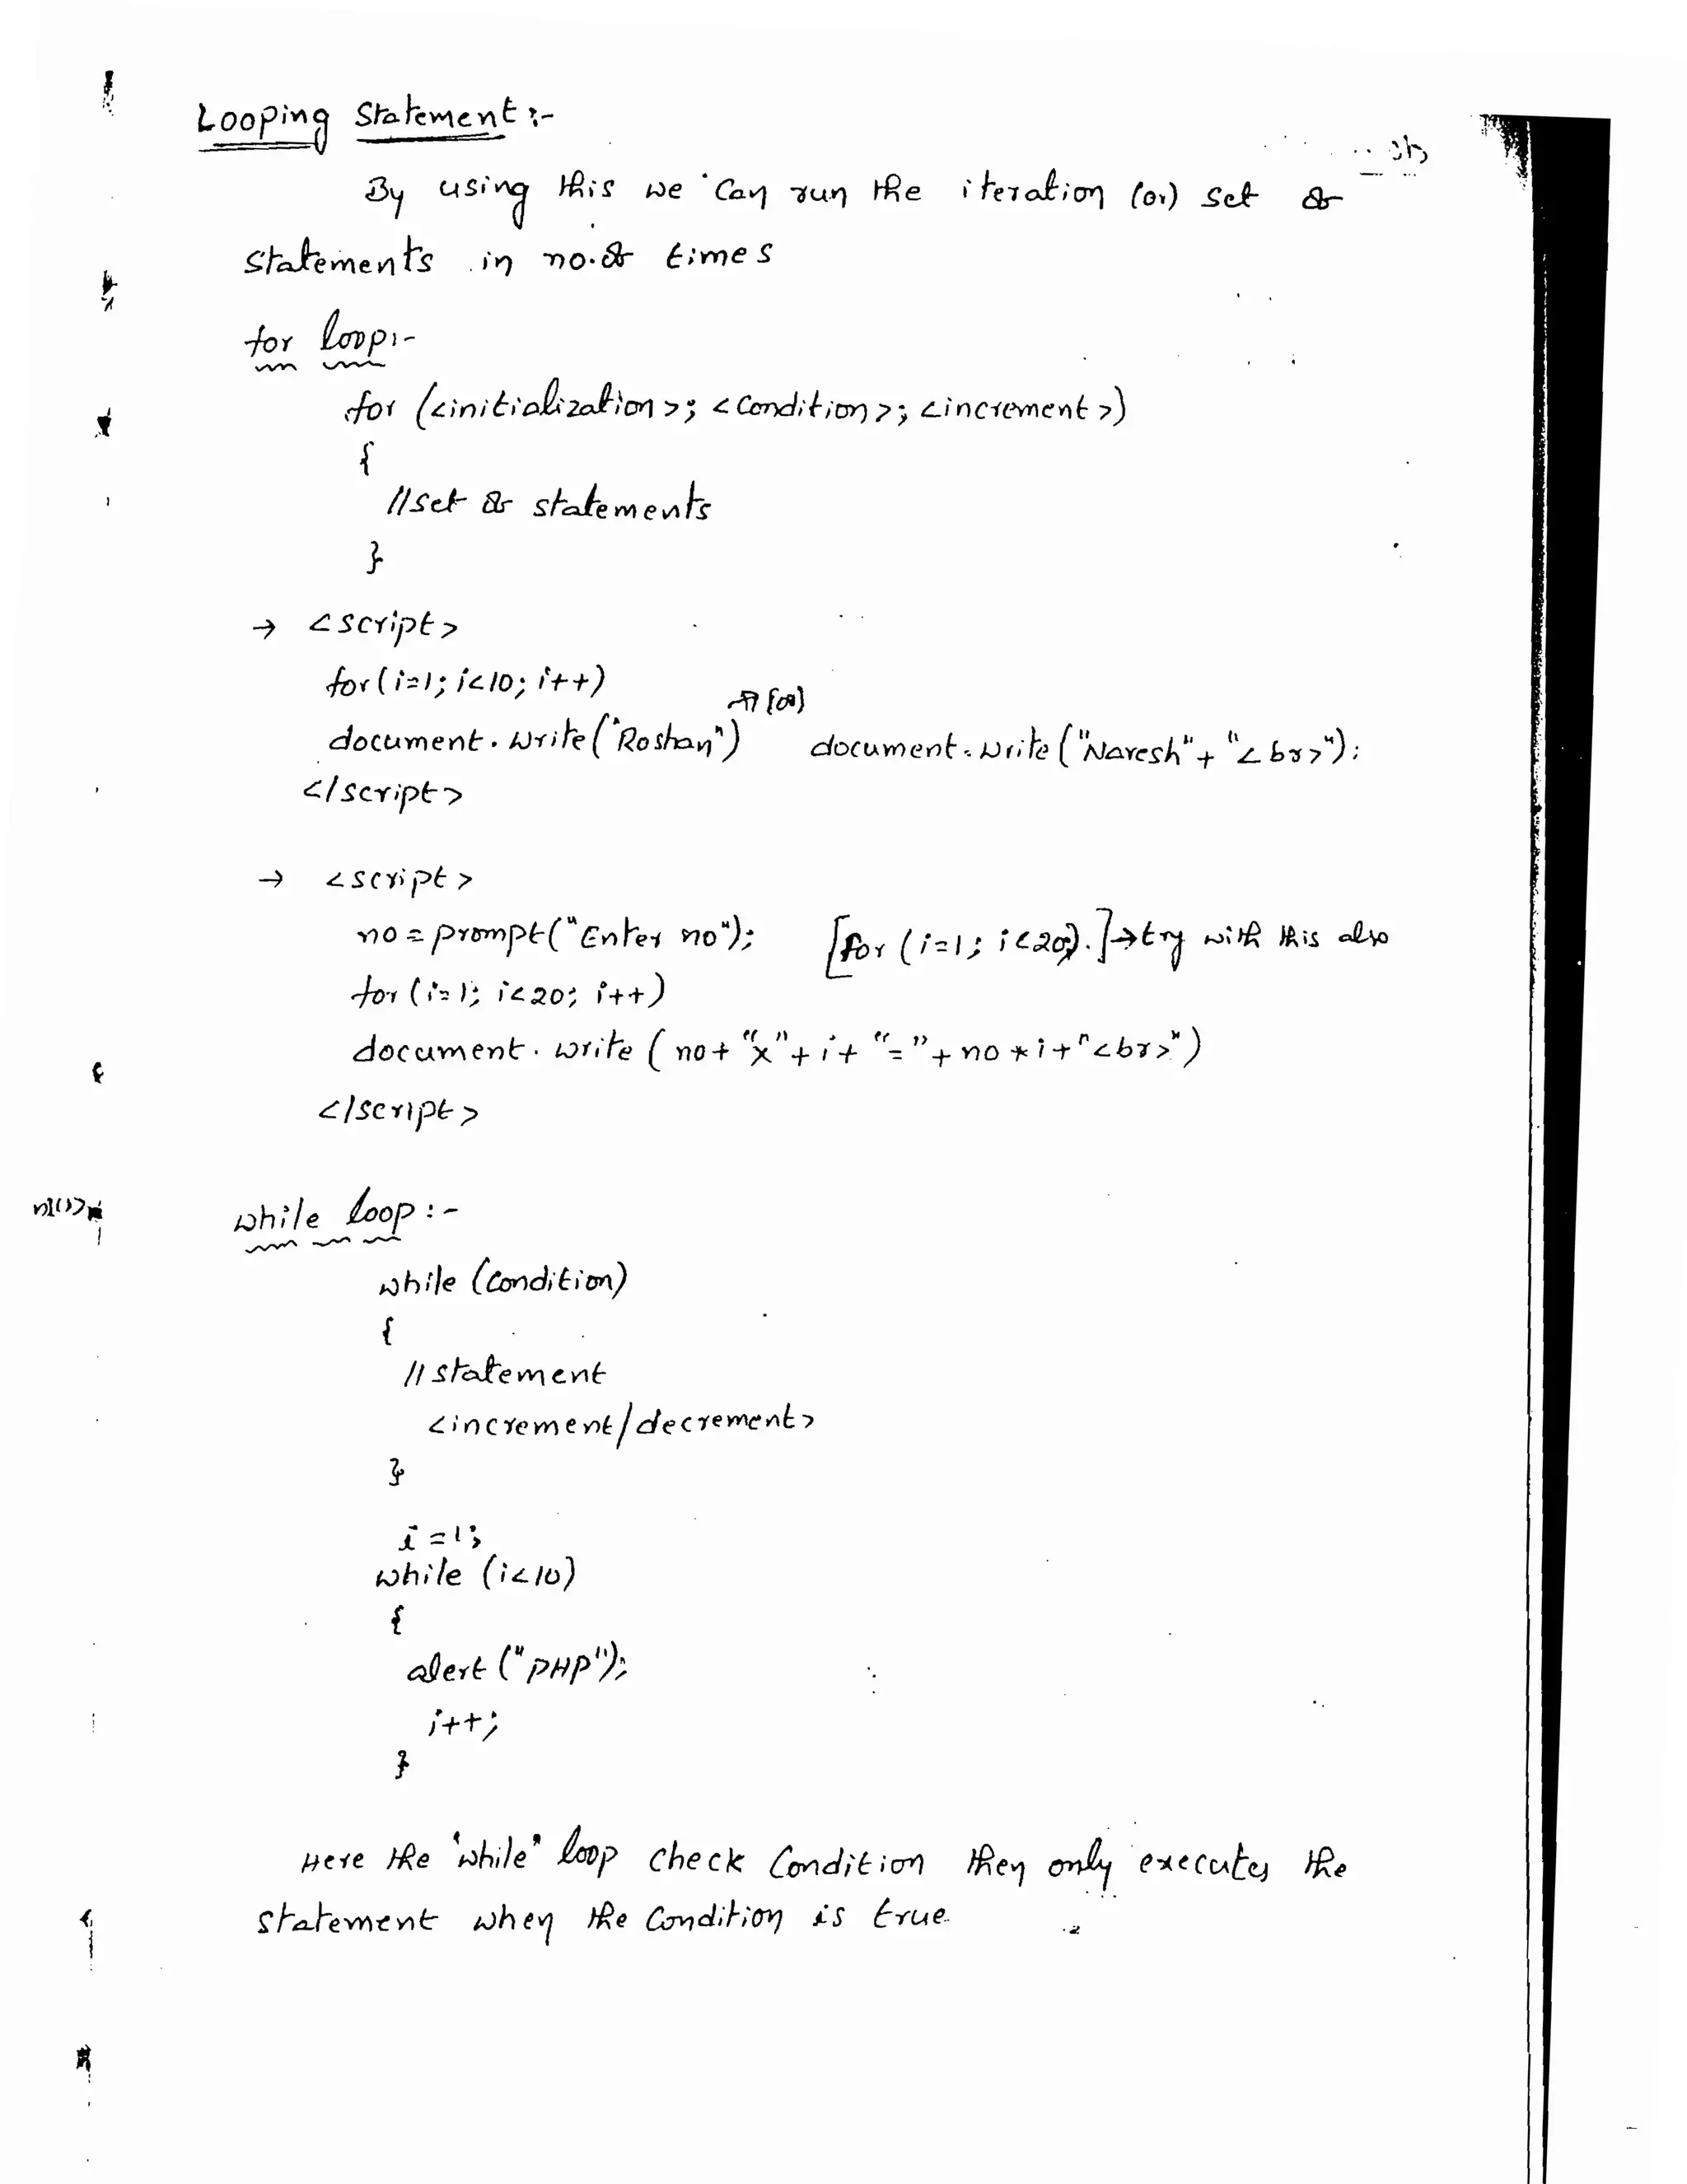 Looping Statement :-
By using this we can run the iteration (or) set of
statements in no. of times
for loop :-
for (<initialization>; <Condition>; <increment>)
{
//set of statements
}
→ <script>
for(i=1; i<10; i++)
document.write("Roshan") (or) document.write("Naresh"+"<br>");
</script>
→ <script>
no = prompt("Enter no"); [for (i=1; i<20;).]→try with this also
for (i=1; i<20; i++)
document.write(no+"x"+i+"="+no*i+"<br>")
</script>
while loop :-
while (Condition)
{
// statement
<increment/decrement>
}
i=1;
while (i<10)
{
alert ("PHP");
i++;
}
Here the "while" loop check Condition then only executes the
statement when the Condition is true.